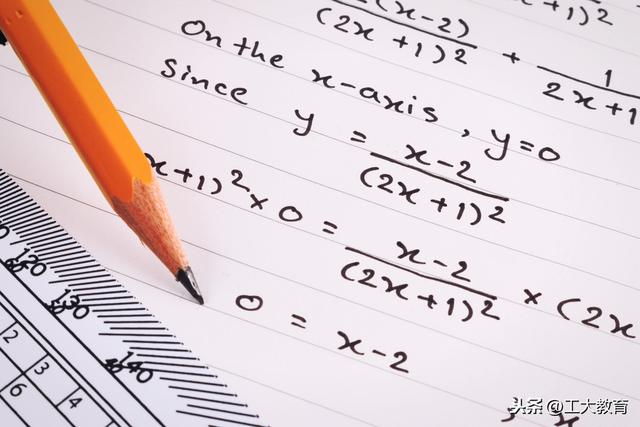 (x-2)
(2x+1)² + 1
2x+1
+1)²
On the x-axis, y=0
Since y = x-2
(2x+1)²
x+1)² × 0 = x-2
(2x+1)² × (2x
0 = x-2
120
130
140
2 3 4
6
头条 @工大教育